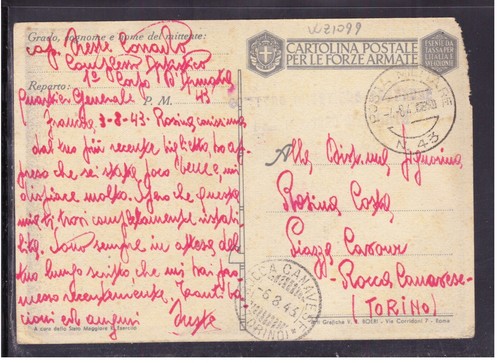 WZ1099
Grado, cognome e nome del mittente:
cap. Oreste
1° Corpo d'Armata
Reparto:
Quartier Generale
P. M. 43
Francia, 3-8-43. Rosina carissima
dal tuo più recente biglietto ho ap-
preso che sei stata poco bene e mi
dispiace molto. Spero che questa
mia ti trovi completamente ristabi-
lita. Sono sempre in attesa del
tuo lungo scritto che mi hai pro-
messo recentemente. Tanti ba-
cioni ed auguri
Oreste
A cura dello Stato Maggiore R. Esercito
CARTOLINA POSTALE
PER LE FORZE ARMATE
ESENTE DA
TASSA PER
L'ITALIA E
SUE COLONIE
POSTA MILITARE
N. 43
Alla Gent.ma Signorina
Rosina Costa
Piazza Cavour
Rocca Canavese-
(TORINO)
ROCCA CANAVESE
-6.8.43
(TORINO)
Arti Grafiche V. R. BOERI - Via Corridoni 7 - Roma